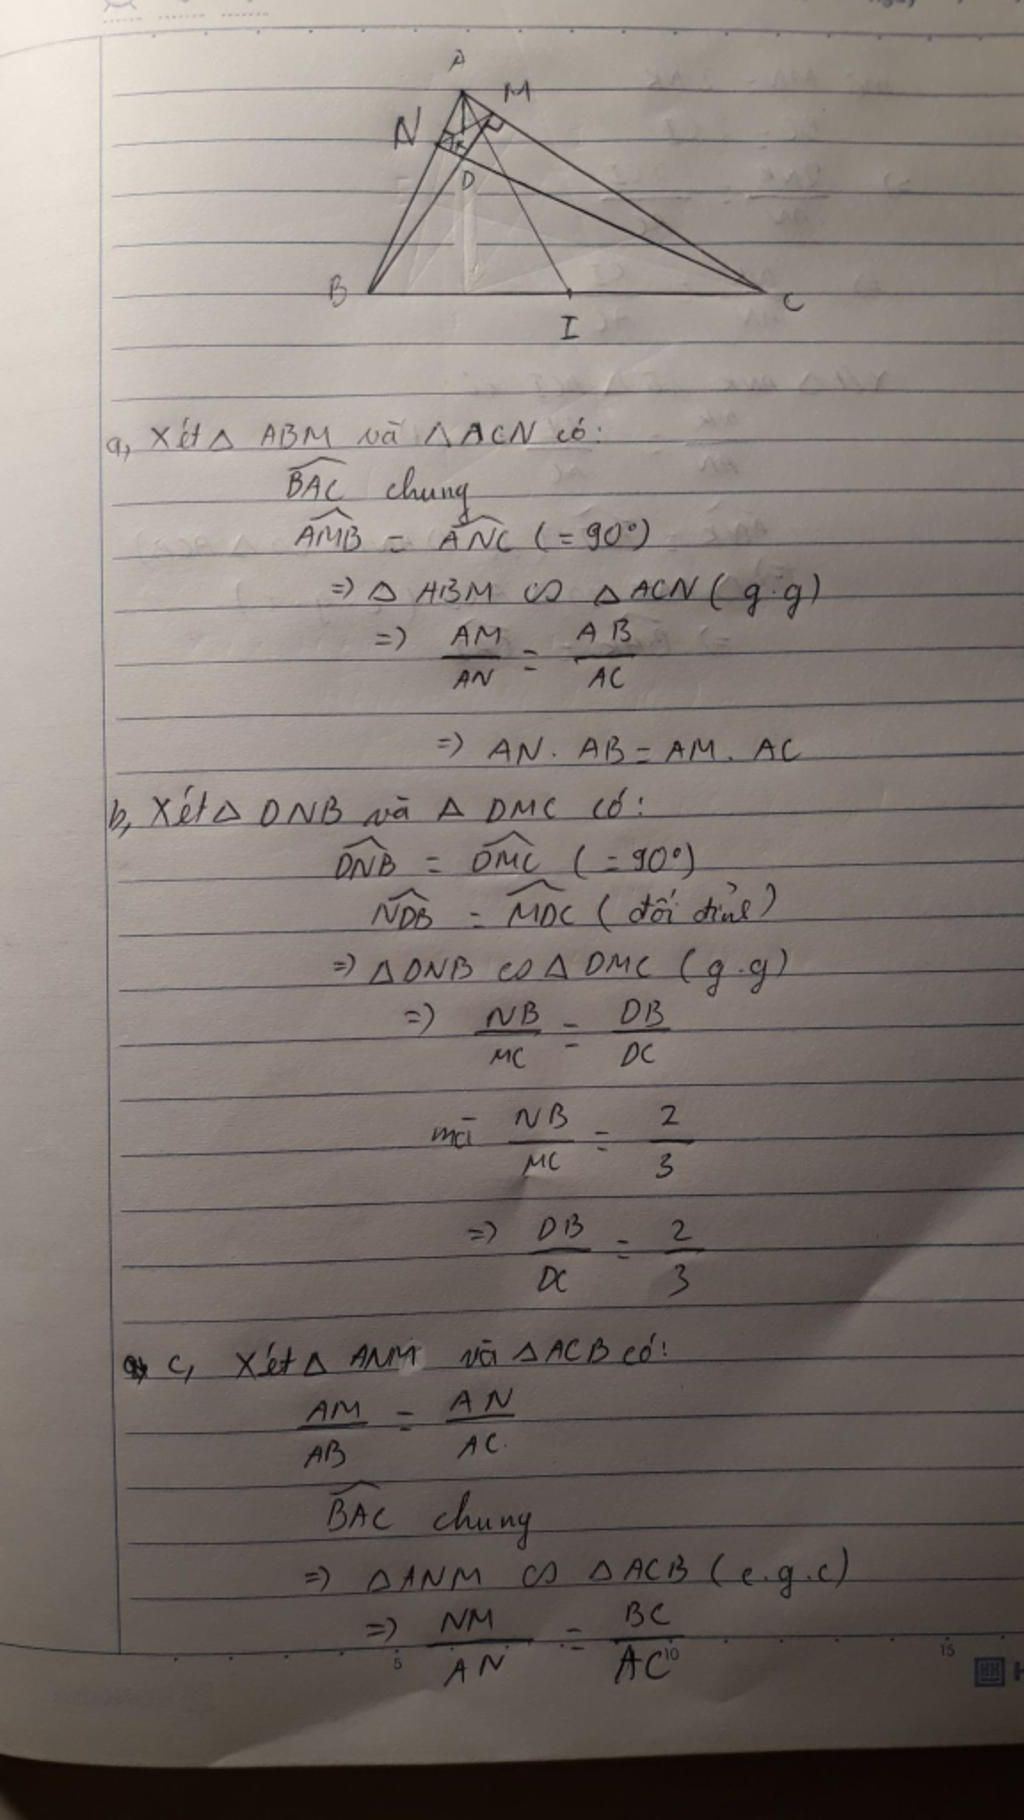 A
M
N
K
D
B
I
C
a, Xét △ ABM và △ ACN có:
BAC chung
AMB = ANC ( = 90°)
=> △ ABM ∽ △ ACN ( g.g)
=> AM/AN = AB/AC
=> AN . AB = AM . AC
b, Xét △ DNB và △ DMC có:
DNB = DMC ( = 90°)
NDB = MDC ( đối đỉnh)
=> △ DNB ∽ △ DMC ( g.g)
=> NB/MC = DB/DC
mà NB/MC = 2/3
=> DB/DC = 2/3
c, Xét △ ANM và △ ACB có:
AM/AB = AN/AC
BAC chung
=> △ ANM ∽ △ ACB ( c.g.c)
=> NM/AN = BC/AC
5 10 15